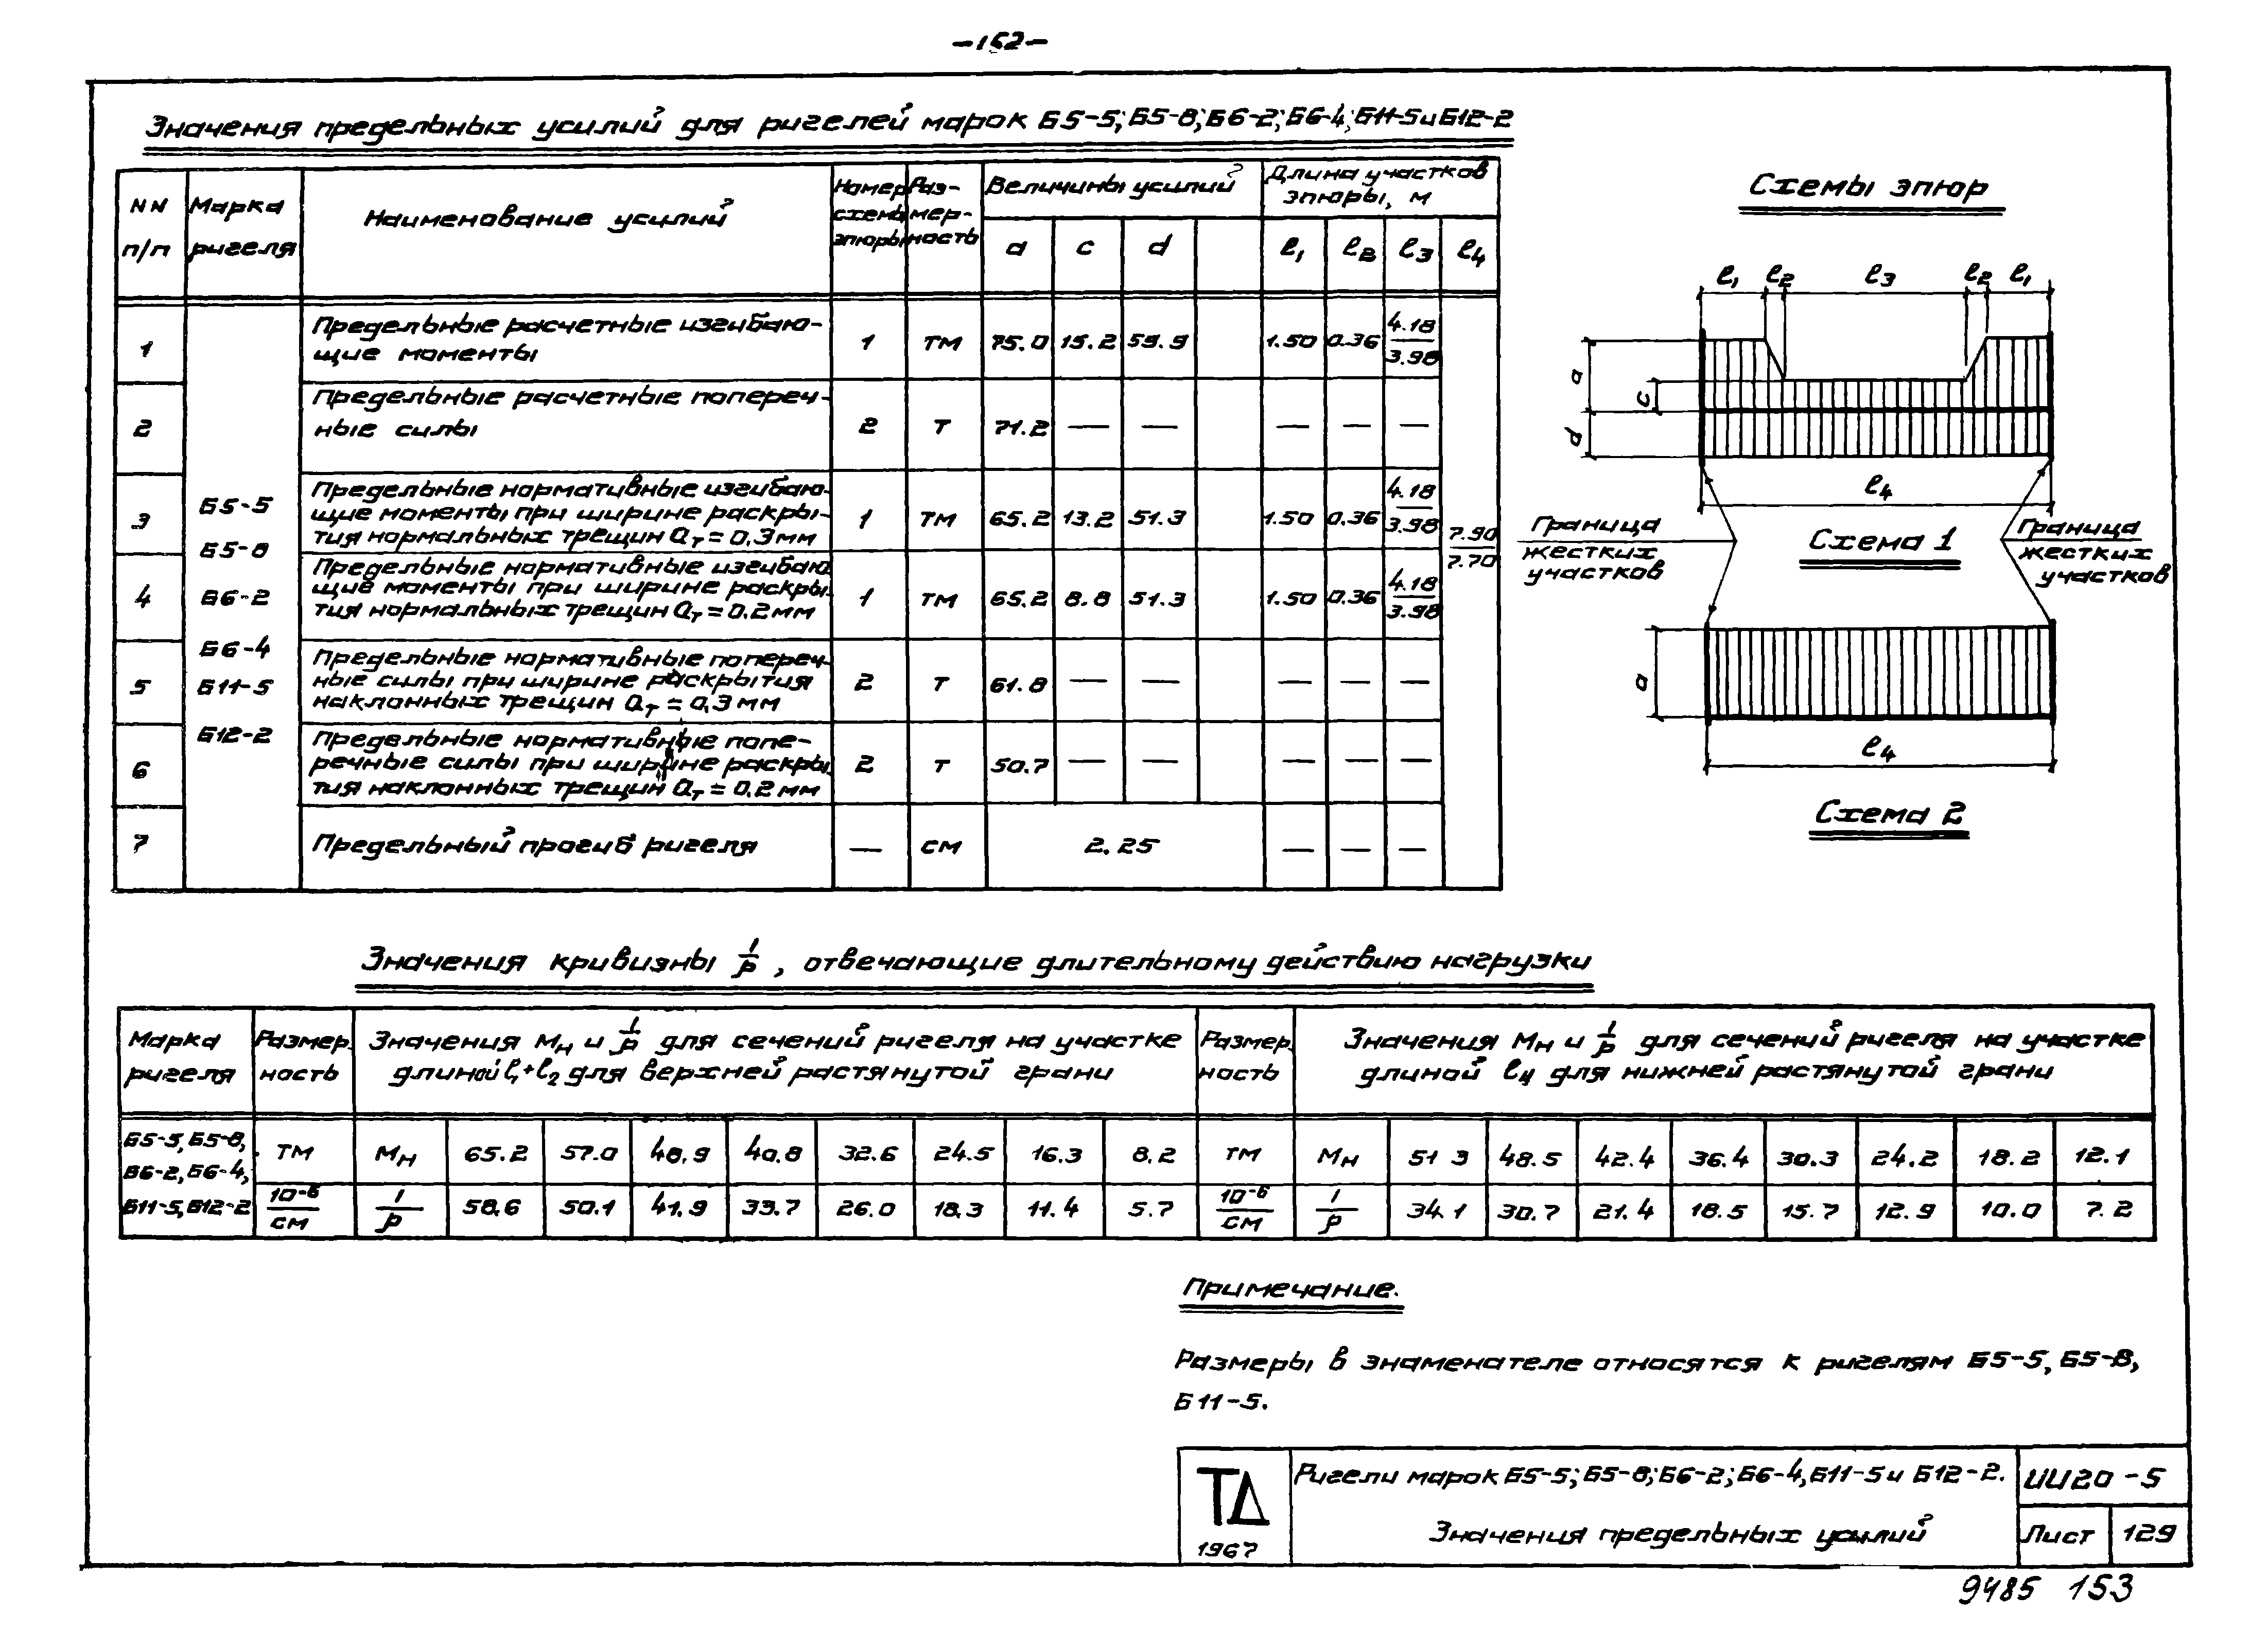 -152-
Значения предельных усилий для ригелей марок Б5-5; Б5-8; Б6-2; Б6-4; Б11-5 и Б12-2
NN п/п
Марка ригеля
Наименование усилий
Номер схемы эпюры
Размерность
Величины усилий
Длина участков эпюры, м
a c d l1 l2 l3 l4
1 Предельные расчетные изгибаю-
щие моменты 1 тм 75.0 15.2 59.9 1.50 0.36 4.18/3.98
2 Предельные расчетные попереч-
ные силы 2 т 71.2 — — — — —
3 Предельные нормативные изгибаю-
щие моменты при ширине раскры-
тия нормальных трещин aт = 0,3 мм 1 тм 65.2 13.2 51.3 1.50 0.36 4.18/3.98
4 Предельные нормативные изгибаю
щие моменты при ширине раскры-
тия нормальных трещин aт = 0.2 мм 1 тм 65.2 8.8 51.3 1.50 0.36 4.18/3.98
5 Предельные нормативные попереч-
ные силы при ширине раскрытия
наклонных трещин aт = 0,3 мм 2 т 61.8 — — — — —
6 Предельные нормативные попе-
речные силы при ширине раскры-
тия наклонных трещин aт = 0.2 мм 2 т 50.7 — — — — —
7 Предельный прогиб ригеля — см 2.25 — — —
Б5-5
Б5-8
Б6-2
Б6-4
Б11-5
Б12-2
7.90/7.70
Схемы эпюр
l1 l2 l3 l2 l1
a
c
d
l4
Граница жестких участков
Схема 1
Граница жестких участков
a
l4
Схема 2
Значения кривизны 1/ρ, отвечающие длительному действию нагрузки
Марка ригеля
Размер-
ность
Значения Mн и 1/ρ для сечений ригеля на участке
длиной l1+l2 для верхней растянутой грани
Размер.
ность
Значения Mн и 1/ρ для сечений ригеля на участке
длиной l4 для нижней растянутой грани
Б5-5, Б5-8,
Б6-2, Б6-4,
Б11-5, Б12-2
тм Mн 65.2 57.0 48.9 40.8 32.6 24.5 16.3 8.2 тм Mн 51 3 48.5 42.4 36.4 30.3 24.2 18.2 12.1
10-6/см 1/ρ 58.6 50.1 41.9 33.7 26.0 18.3 11.4 5.7 10-6/см 1/ρ 34.1 30.7 21.4 18.5 15.7 12.9 10.0 7.2
Примечание.
Размеры в знаменателе относятся к ригелям Б5-5, Б5-8,
Б11-5.
ТД
1967
Ригели марок Б5-5; Б5-8; Б6-2; Б6-4, Б11-5 и Б12-2.
Значения предельных усилий
ИИ20-5
Лист 129
9485 153